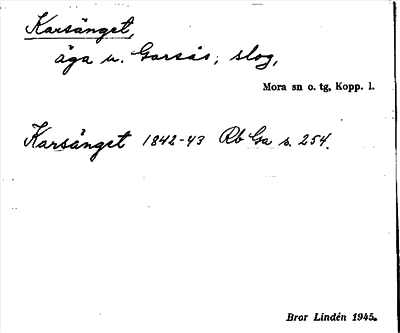 Karsänget,
äga u. Gorsås; slog,
Mora sn o. tg, Kopp. l.
Karsänget 1842-43 Rb Ga s. 254.
Bror Lindén 1945.